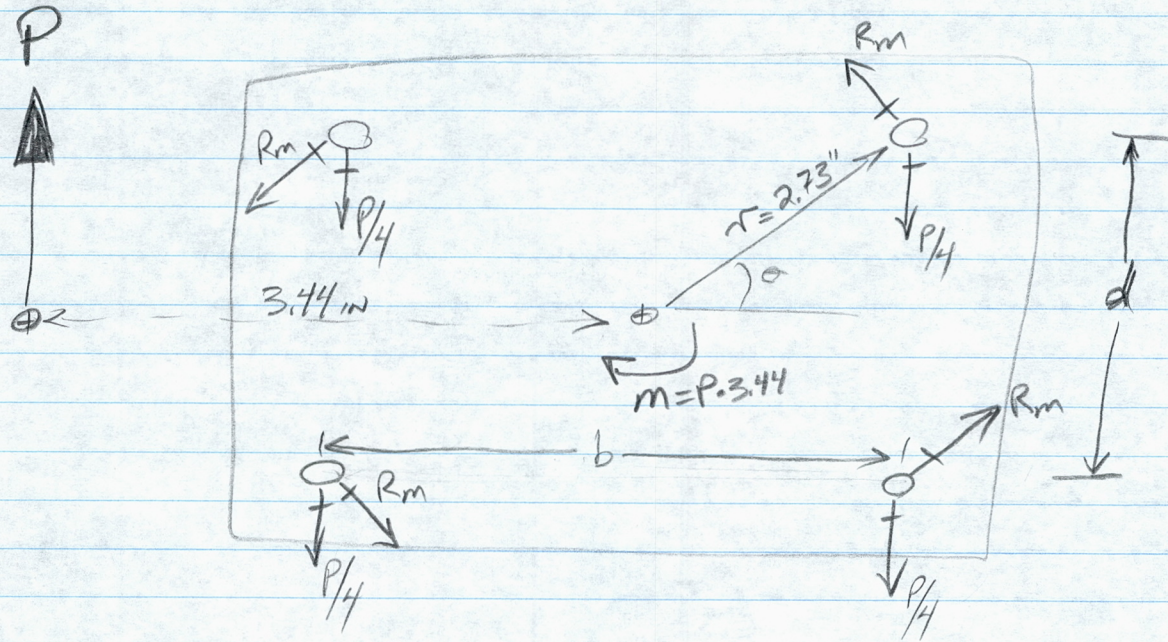 P
Rm
Rm
P/4
r=2.73"
P/4
θ
3.44 IN
d
m=P•3.44
b
Rm
Rm
P/4
P/4